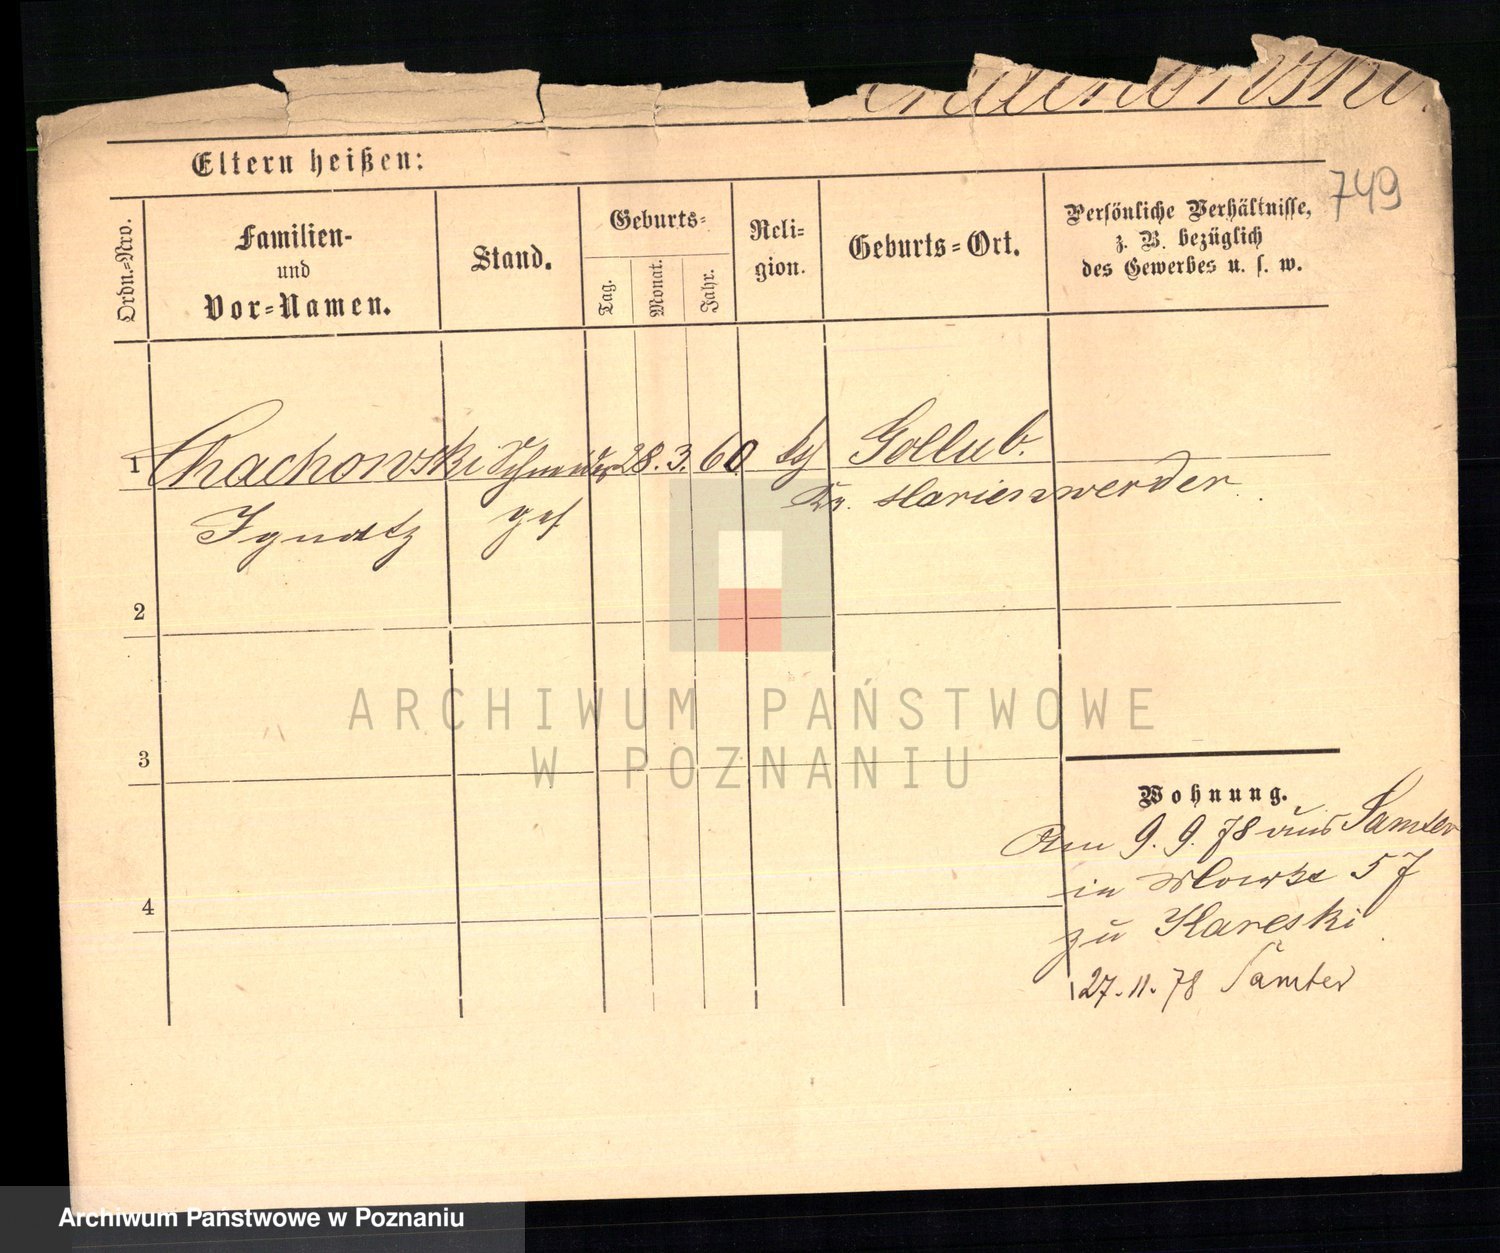 Chachowski.
Eltern heißen:
749
Ordn.-Nro.
Familien-
und
Vor-Namen.
Stand.
Geburts-
Tag.
Monat.
Jahr.
Reli-
gion.
Geburts-Ort.
Persönliche Verhältnisse,
z. B. bezüglich
des Gewerbes u. s. w.
1 Chachowski Schneider 28. 3. 60 Gollub.
Ignatz ges Kr. Marienwerder
2
3
4
Wohnung.
Am 9. 9. 78 aus Samter
in 57
zu
27. 11. 78 Samter
ARCHIWUM PAŃSTWOWE
W POZNANIU
Archiwum Państwowe w Poznaniu